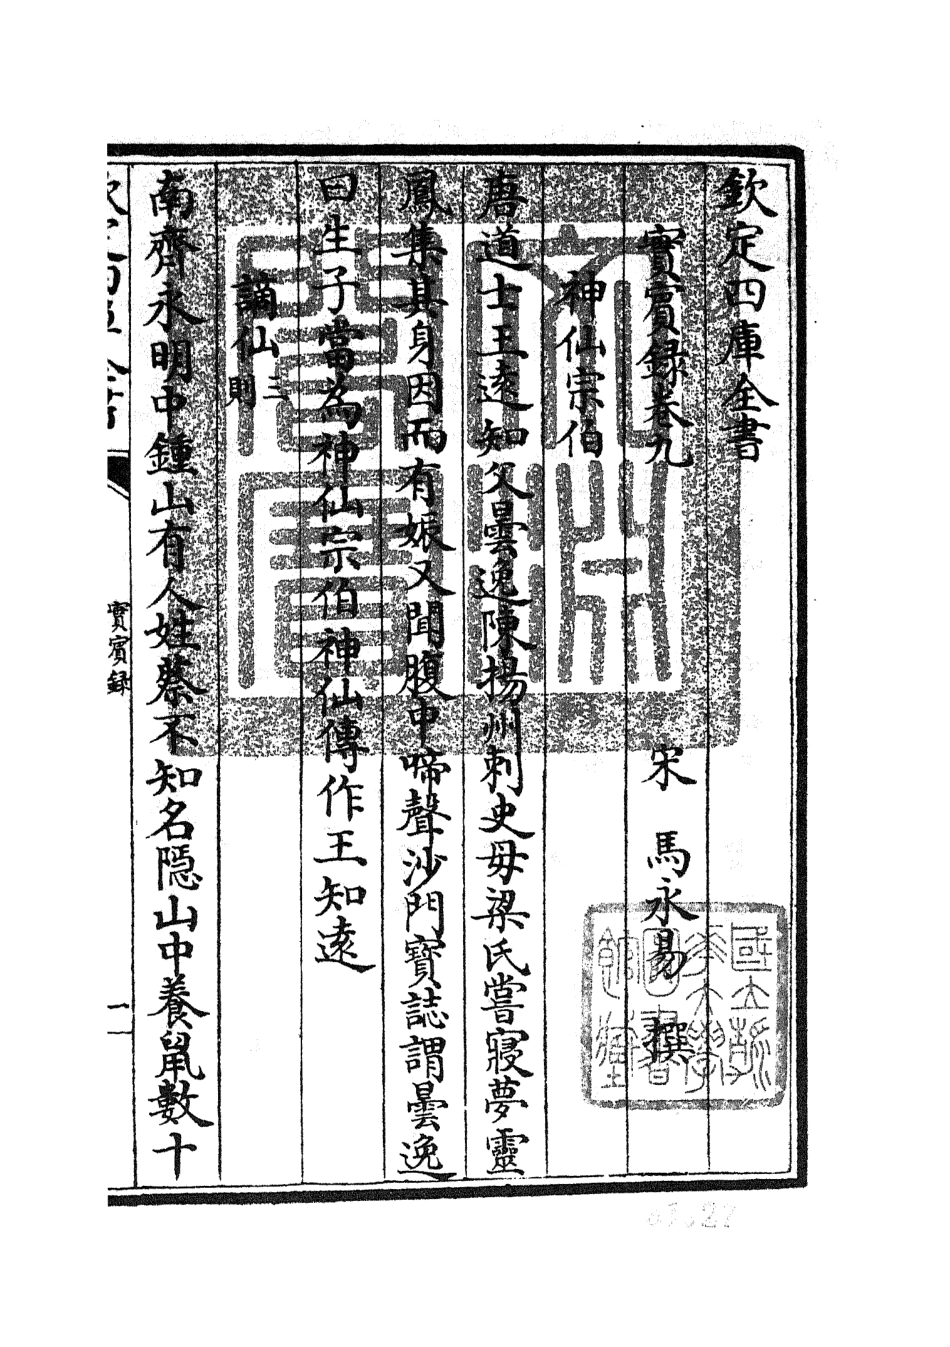 欽定四庫全書
實賓録卷九
宋 馬永易 撰
神仙宗伯
唐道士王逺知父曇逸陳揚州刺史母梁氏嘗寢夢靈
鳳集其身因而有娠又聞腹中啼聲沙門寳誌謂曇逸
曰生子當為神仙宗伯神仙傳作王知逺
謫仙三則
南齊永明中鍾山有人姓蔡不知名隱山中養鼠數十
實賓録
一
文淵閣寶
國立北平大學圖書館藏